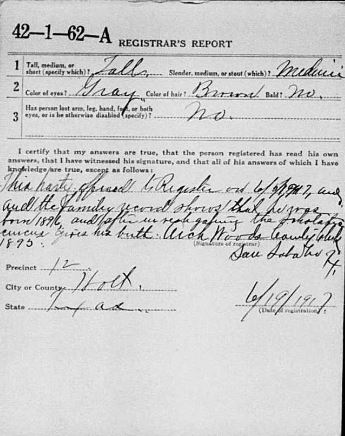 42—1—62—A REGISTRAR'S REPORT
1 Tall, medium, or short (specify which)? Tall Slender, medium, or stout (which)? Medium
2 Color of eyes? Gray Color of hair? Brown Bald? No.
3 Has person lost arm, leg, hand, foot, or both eyes, or is he otherwise disabled (specify)? No.
I certify that my answers are true, that the person registered has read his own
answers, that I have witnessed his signature, and that all of his answers of which I have
knowledge are true, except as follows:
This party to Register on
and the family record shows that he was
born 1896, and after the
census gives his birth. Arch Woods County Clerk
1895.
(Signature of registrar)
Precinct 12
City or County Holt
State
6/19/1917
(Date of registration)